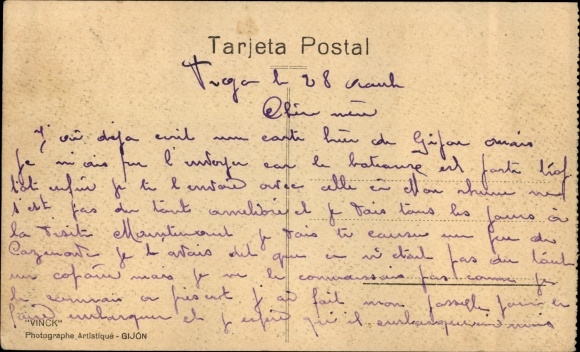 Tarjeta Postal
le 28
Cher
J'ai déja écrit une carte hier de Gijon mais
je n'ais pu l'envoyer car le bateaux est parti trop
tôt enfin je te l'envoie avec celle ci Mon rhume ne
s'est pas du tout amelioré et je vais tous les jours à
la visite Maintenant je vais te causer un peu de
je te avais dit que ce n'était pas du tout
un copain mais je ne le connaissais pas comme je
le connais a présent j'ai fait mon possible pour le
faire embarquer et j'espère qu'il embarquera
"VINCK"
Photographe Artistique - GIJÓN